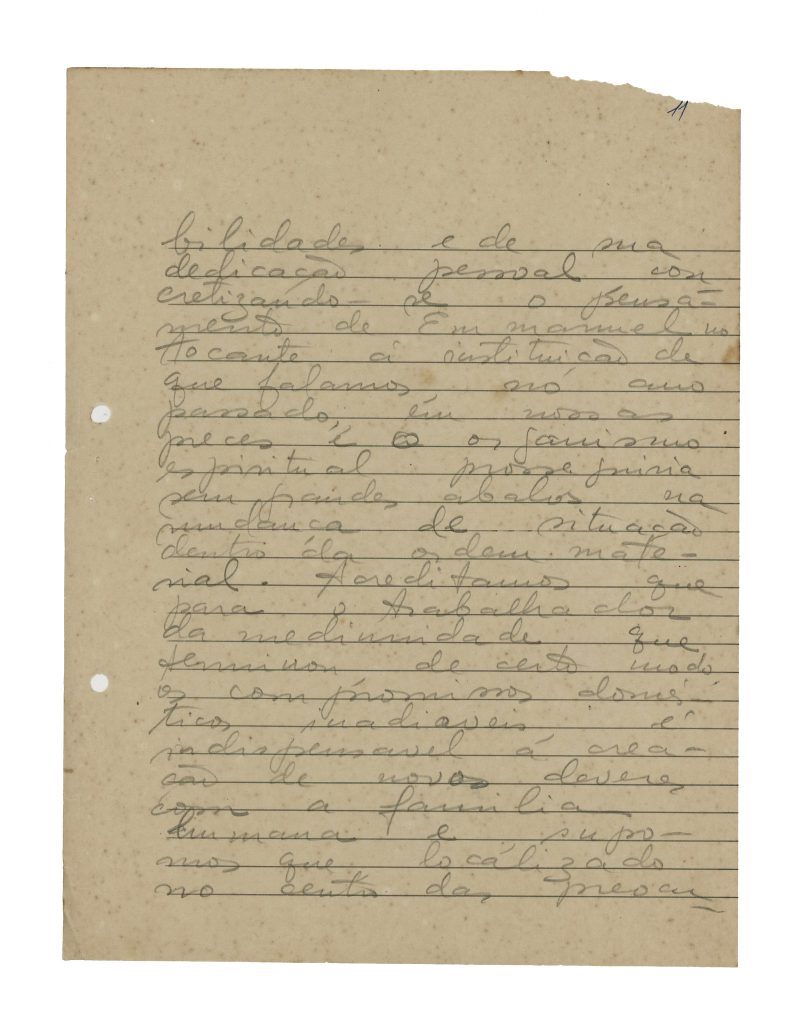 11
bilidades e de sua
dedicação pessoal con
cretizando-se o pensa-
mento de Emmanuel no
tocante á instituição de
que falamos, no ano
passado, em nossas
preces é o organismo
espiritual prosseguiria
sem grandes abalos na
mudança de situação
dentro da ordem mate-
rial. Acreditamos que
para o trabalhador
da mediunidade que
terminou de certo modo
os compromissos domés-
ticos inadiaveis é
indispensavel á crea-
ção de novos deveres
com a familia
humana e supo-
mos que localizado
no centro das preocu